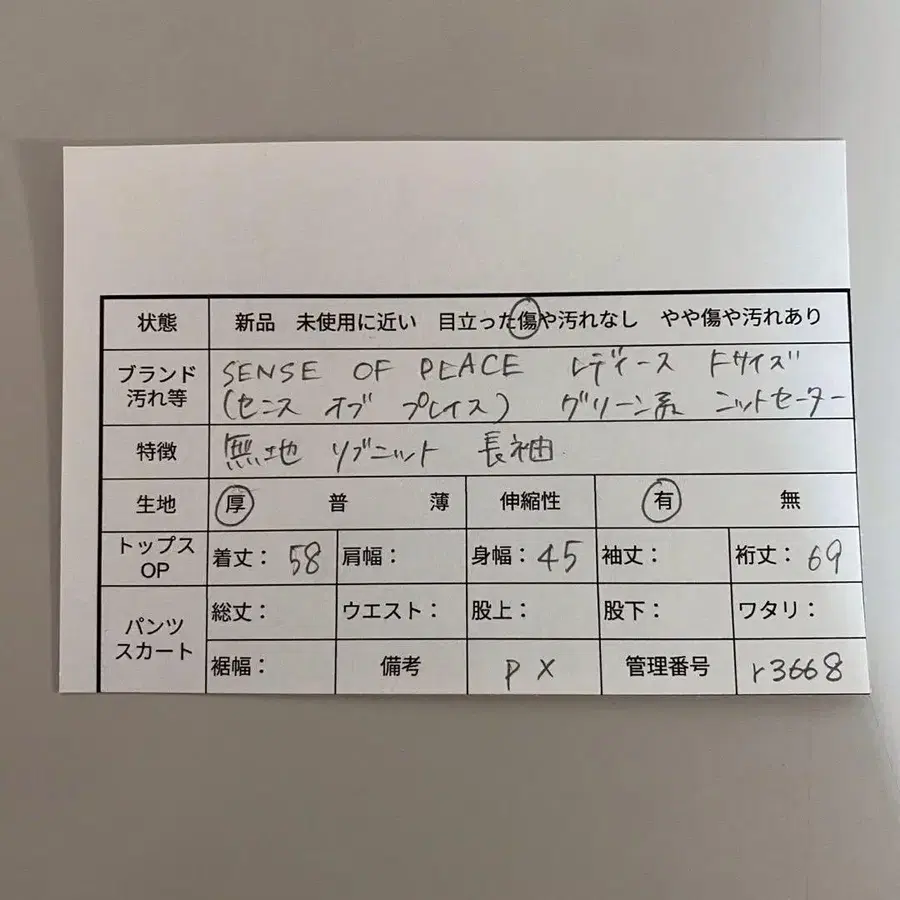 状態 新品 未使用に近い 目立った傷や汚れなし やや傷や汚れあり
ブランド 汚れ等 SENSE OF PLACE レディース Fサイズ
(センス オブ プレイス) グリーン系 ニットセーター
特徴 無地 リブニット 長袖
生地 厚 普 薄 伸縮性 有 無
トップス OP 着丈: 58 肩幅: 身幅: 45 袖丈: 裄丈: 69
パンツ スカート 総丈: ウエスト: 股上: 股下: ワタリ:
裾幅: 備考 PX 管理番号 r3668